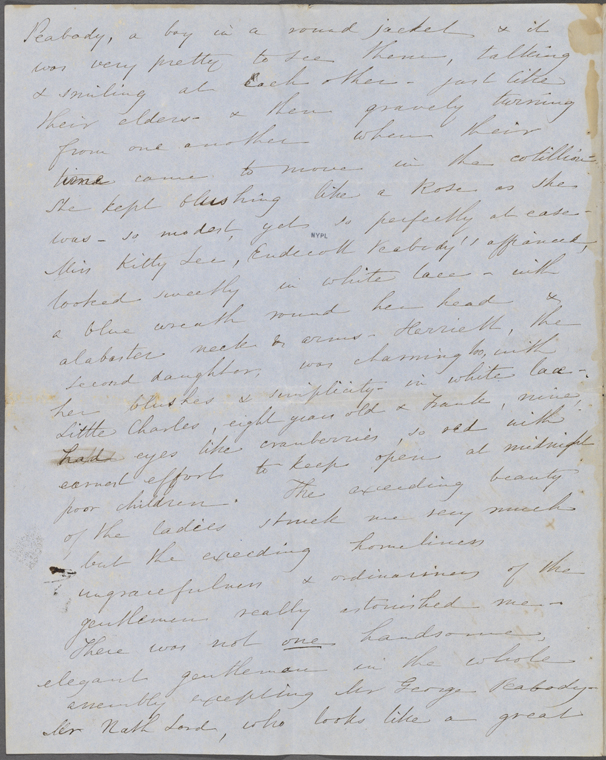 Peabody, a boy in a round jacket & it
was very pretty to see them, talking
& smiling at each other - just like
their elders - & then gravely turning
from one another when their
time came to move in the cotillion -
She kept blushing like a Rose as she
was - so modest, yet so perfectly at ease -
NYPL
Miss Kitty Lee, Endecott Peabody's affianced,
looked sweetly in white lace - with
a blue wreath round her head &
alabaster neck & arms - Herriett, the
second daughter, was charming too, with
her blushes & simplicity - in white lace -
Little Charles, eight years old & Frank, nine,
had eyes like cranberries, so red with
earnest effort to keep open at midnight
poor children. The exceeding beauty
of the ladies struck me very much
but the exceeding homeliness
ungracefulness & ordinariness of the
gentlemen really astonished me -
There was not one handsome,
elegant gentleman in the whole
assembly excepting Mr George Peabody -
Mr Nath Lord, who looks like a great